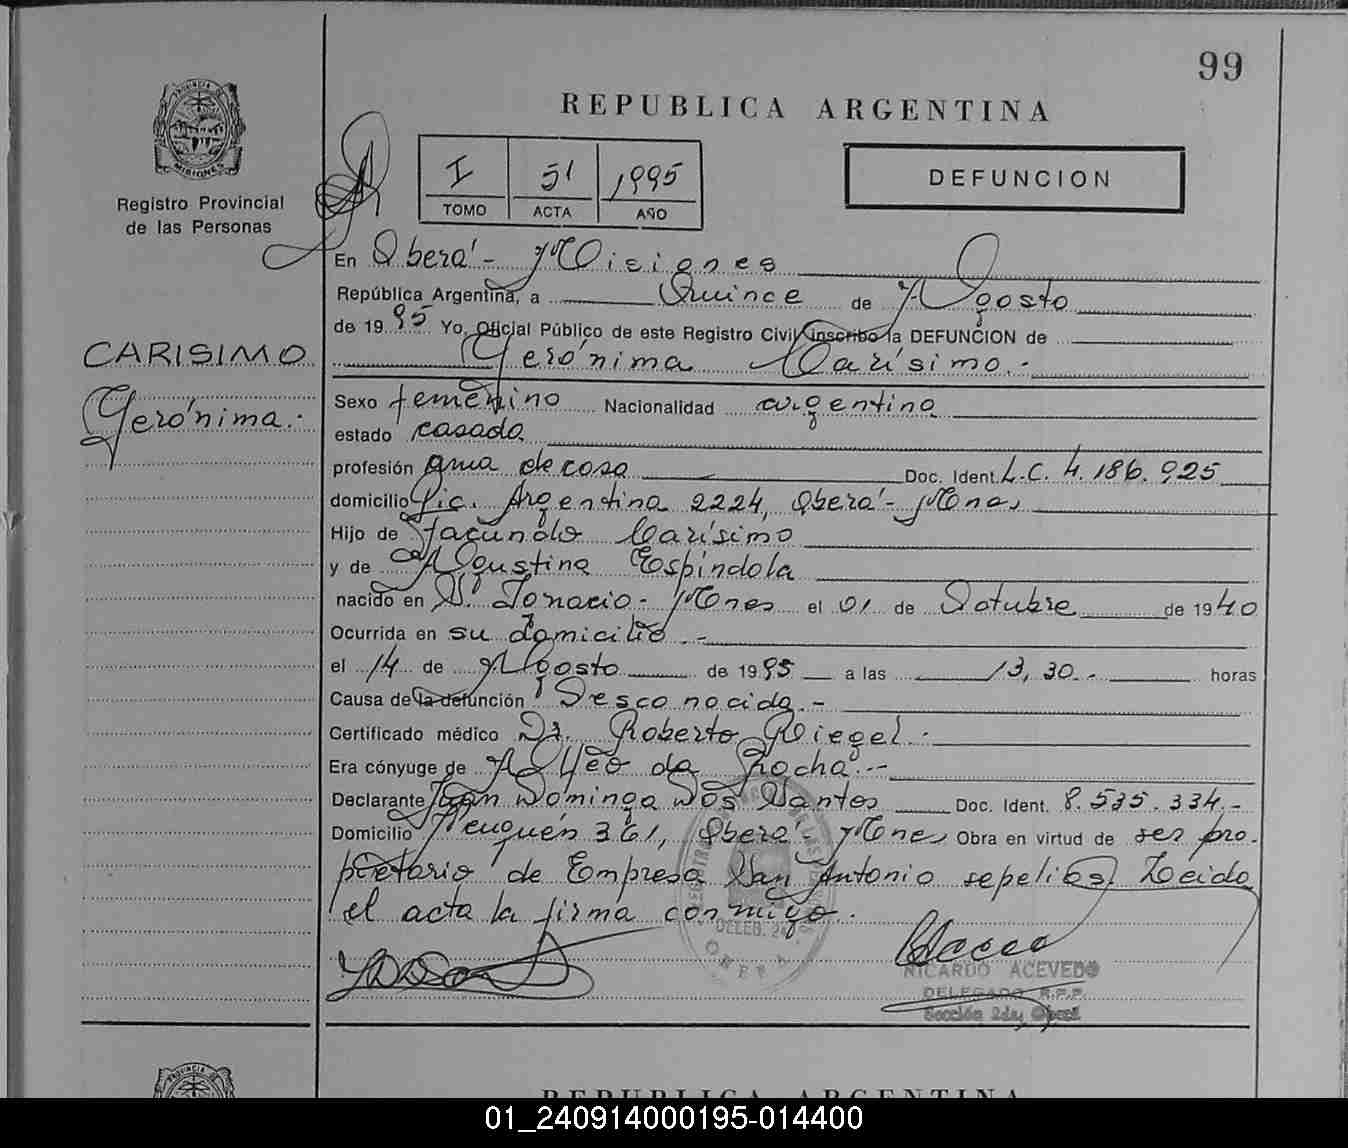 99
REPUBLICA ARGENTINA
PROVINCIA DE
MISIONES
Registro Provincial
de las Personas
I 51 1995
TOMO ACTA AÑO
DEFUNCION
En Oberá - Misiones
República Argentina, a Quince de Agosto
de 1995 Yo, Oficial Público de este Registro Civil inscribo la DEFUNCION de
CARISIMO
Gerónima Carísimo.-
Gerónima.-
Sexo femenino Nacionalidad argentina
estado casada
profesión ama de casa Doc. Ident. L.C. 4.186.925
domicilio Argentina 2224, Oberá - Mnes
Hijo de Facundo Carísimo
y de Agustina Espíndola
nacido en S. Ignacio - Mnes el 01 de Octubre de 1940
Ocurrida en su domicilio.-
el 14 de Agosto de 1995 a las 13,30.- horas
Causa de la defunción Desconocida.-
Certificado médico Dr. Roberto
Era cónyuge de da Rocha.-
Declarante Juan Domingo Dos Santos Doc. Ident. 8.535.334.-
Domicilio Neuquén 361, Oberá - Mnes Obra en virtud de ser pro-
pietario de Empresa San Antonio sepelios. Leida
el acta la firma conmigo.
DELEG. 2da
OBERA
RICARDO ACEVEDO
DELEGADO R.P.P.
Sección 2da, Oberá
PROVINCIA DE
REPUBLICA ARGENTINA
01_240914000195-014400